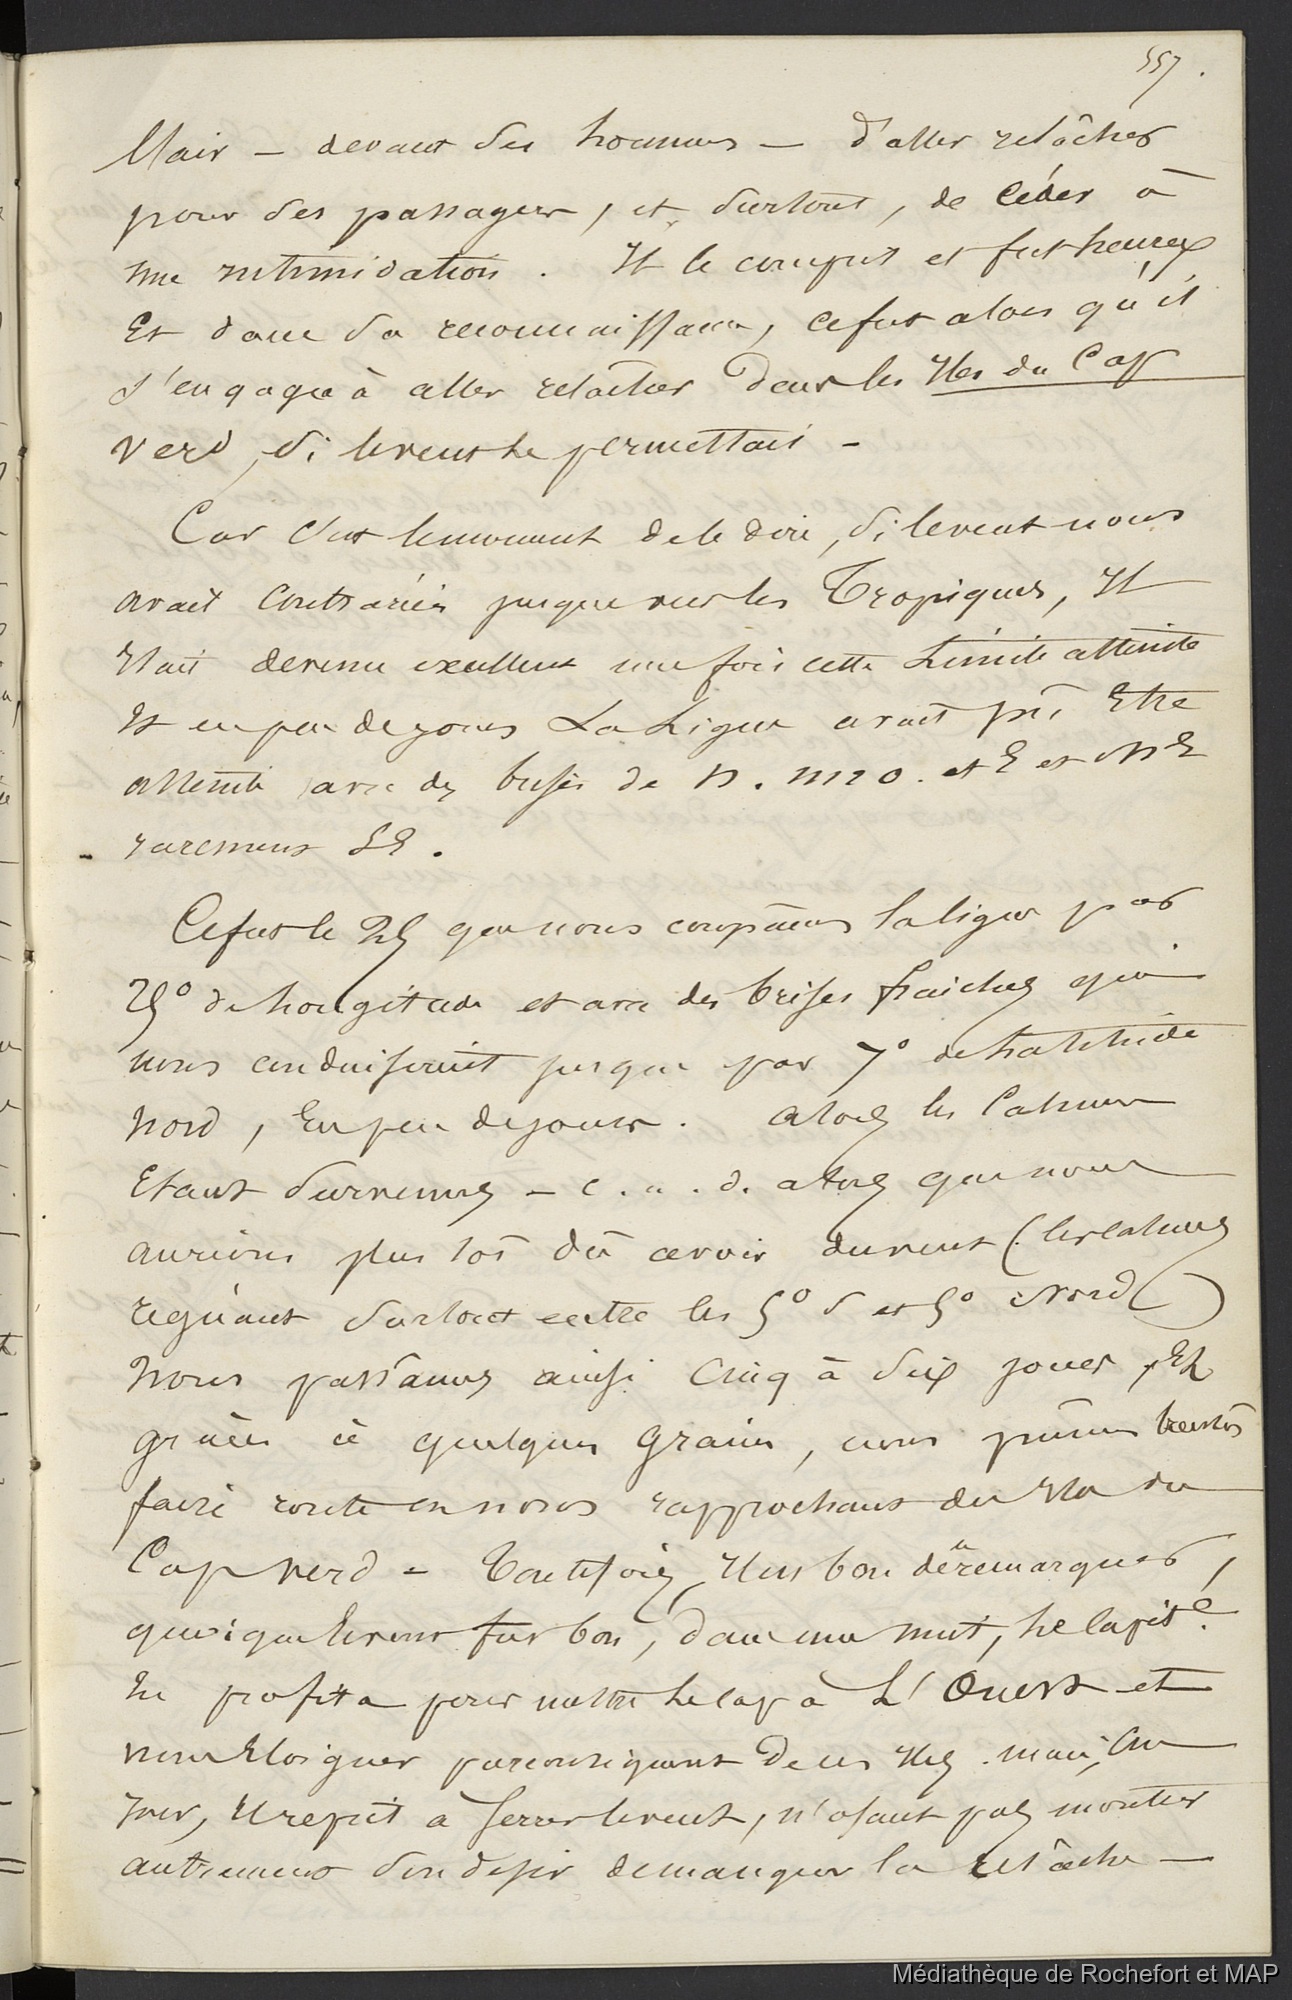 557.
clair — devant des hommes — d'aller relâcher
pour des passagers, et surtout, de céder à
une intimidation. Il le comprit et fut heureux
Et dans sa reconnaissance, ce fut alors qu'il
s'engagea à aller relâcher dans les Iles du Cap
Verd, si le vent le permettait —
Car c'est le moment de le dire, si le vent nous
avait contrariés jusque vers les Tropiques, Il
Etait devenu excellent une fois cette Limite atteinte
Et en peu de jours La Ligne avait pu Etre
atteinte avec des brises de N. NNO. et E et NE
rarement SE.
Ce fut le 25 que nous coupâmes la ligne par
25° de Longitude et avec des brises fraiches qui
nous conduisirent jusque par 7° de Latitude
Nord, En peu de jours. alors les Calmes
Etant survenus — c. a. d. alors que nous
aurions plus tôt dû avoir du vent (les calmes
regnant surtout entre les 5° S et 5° Nord)
Nous passâmes ainsi cinq à dix jours, Et
grâces à quelques grains, nous pûmes bientôt
faire route en nous rapprochant des Iles du
Cap Verd — Toutefois, Il est bon de remarquer,
quoique le vent fut bon, dans une nuit, le capit.e
En profita pour mettre le cap à L'Ouest et
nous Eloigner par conséquent de ces Iles. mais, au
jour, Il reprit à serrer le vent, n'osant pas montrer
autrement son desir de manquer la relâche —
Médiathèque de Rochefort et MAP